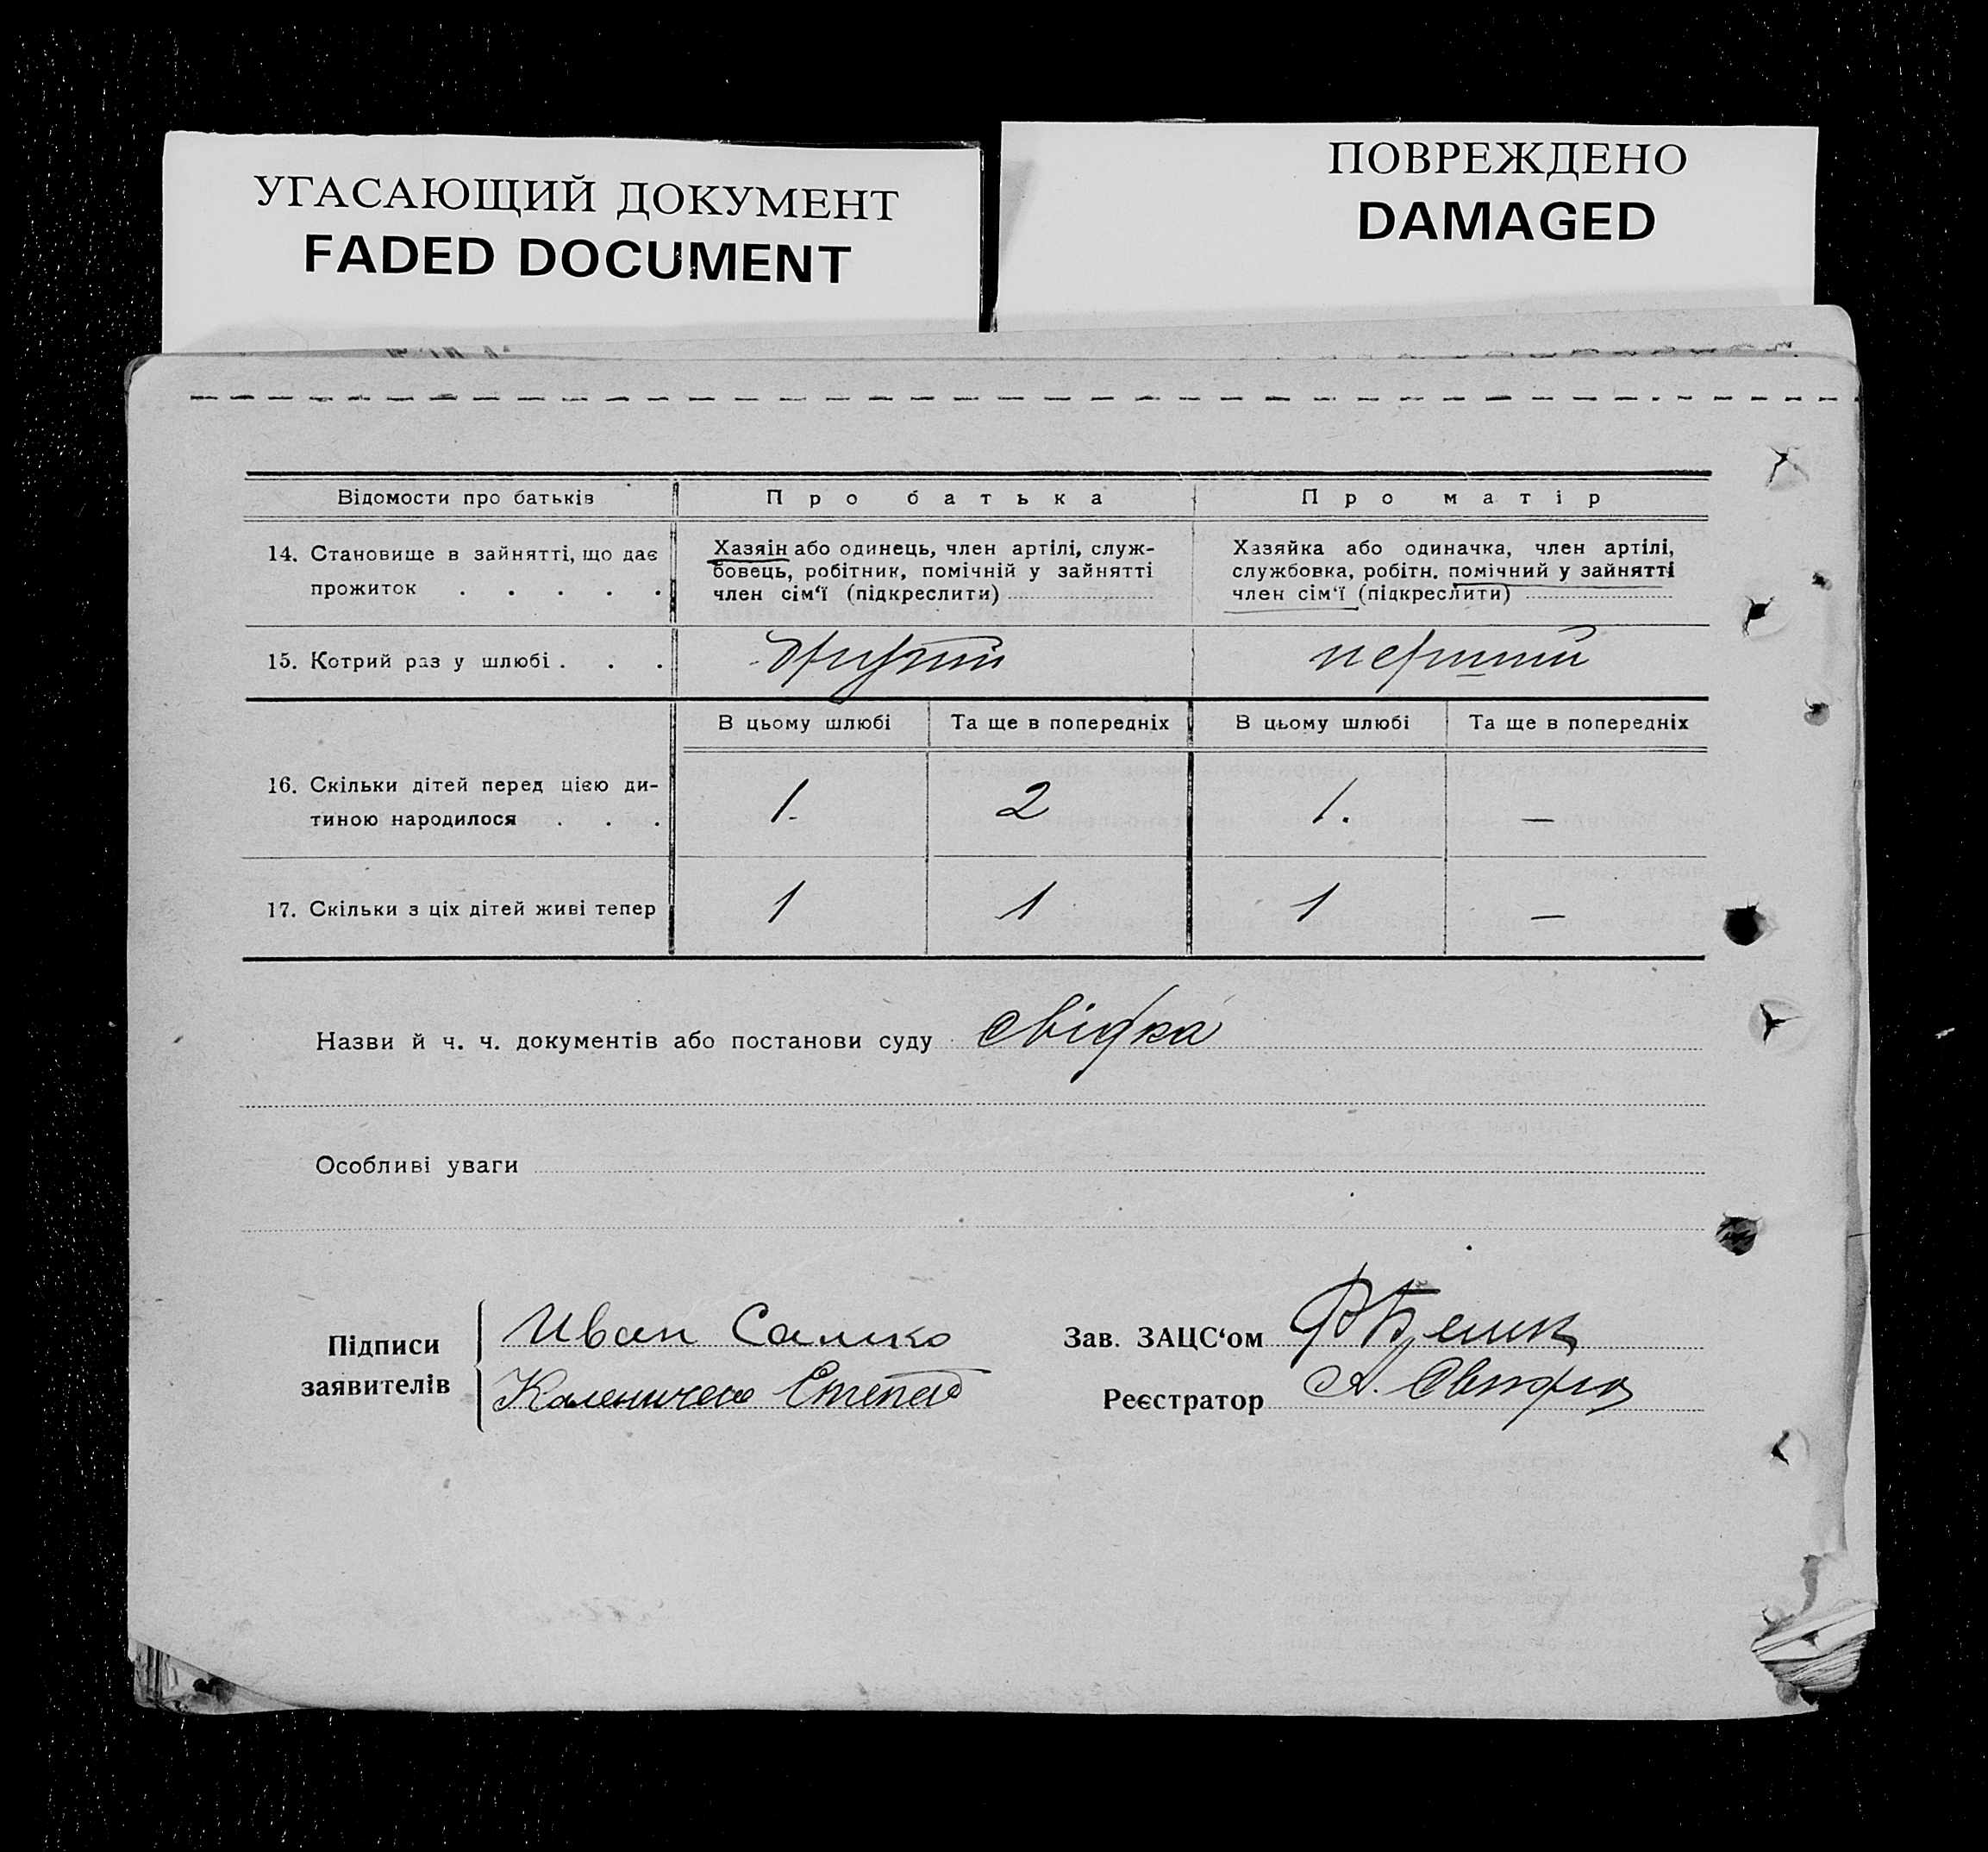 УГАСАЮЩИЙ ДОКУМЕНТ
FADED DOCUMENT
ПОВРЕЖДЕНО
DAMAGED
Відомости про батьків
Про батька
Про матір
14. Становище в зайнятті, що дає
прожиток . . . . .
Хазяін або одинець, член артілі, служ-
бовець, робітник, помічній у зайнятті
член сім‘ї (підкреслити)
Хазяйка або одиначка, член артілі,
службовка, робітн. помічний у зайнятті
член сім‘ї (підкреслити)
15. Котрий раз у шлюбі . . .
другий
перший
В цьому шлюбі
Та ще в попередніх
В цьому шлюбі
Та ще в попередніх
16. Скільки дітей перед цією ди-
тиною народилося . . .
1.
2
1.
—
17. Скільки з ціх дітей живі тепер
1
1
1
—
Назви й ч. ч. документів або постанови суду свідка
Особливі уваги
Підписи
заявителів
Иван Самко
Каленичено Степан
Зав. ЗАЦС‘ом
Реєстратор А.